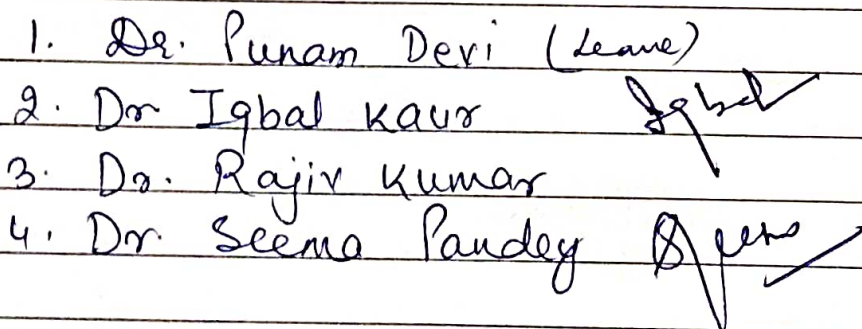 1. Dr. Punam Devi (Leave)
2. Dr Iqbal Kaur Iqbal
3. Dr. Rajiv Kumar
4. Dr. Seema Pandey